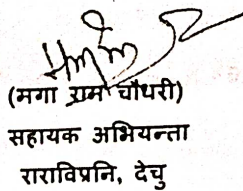 (मगा राम चौधरी)
सहायक अभियन्ता
राराविप्रनि, देचु